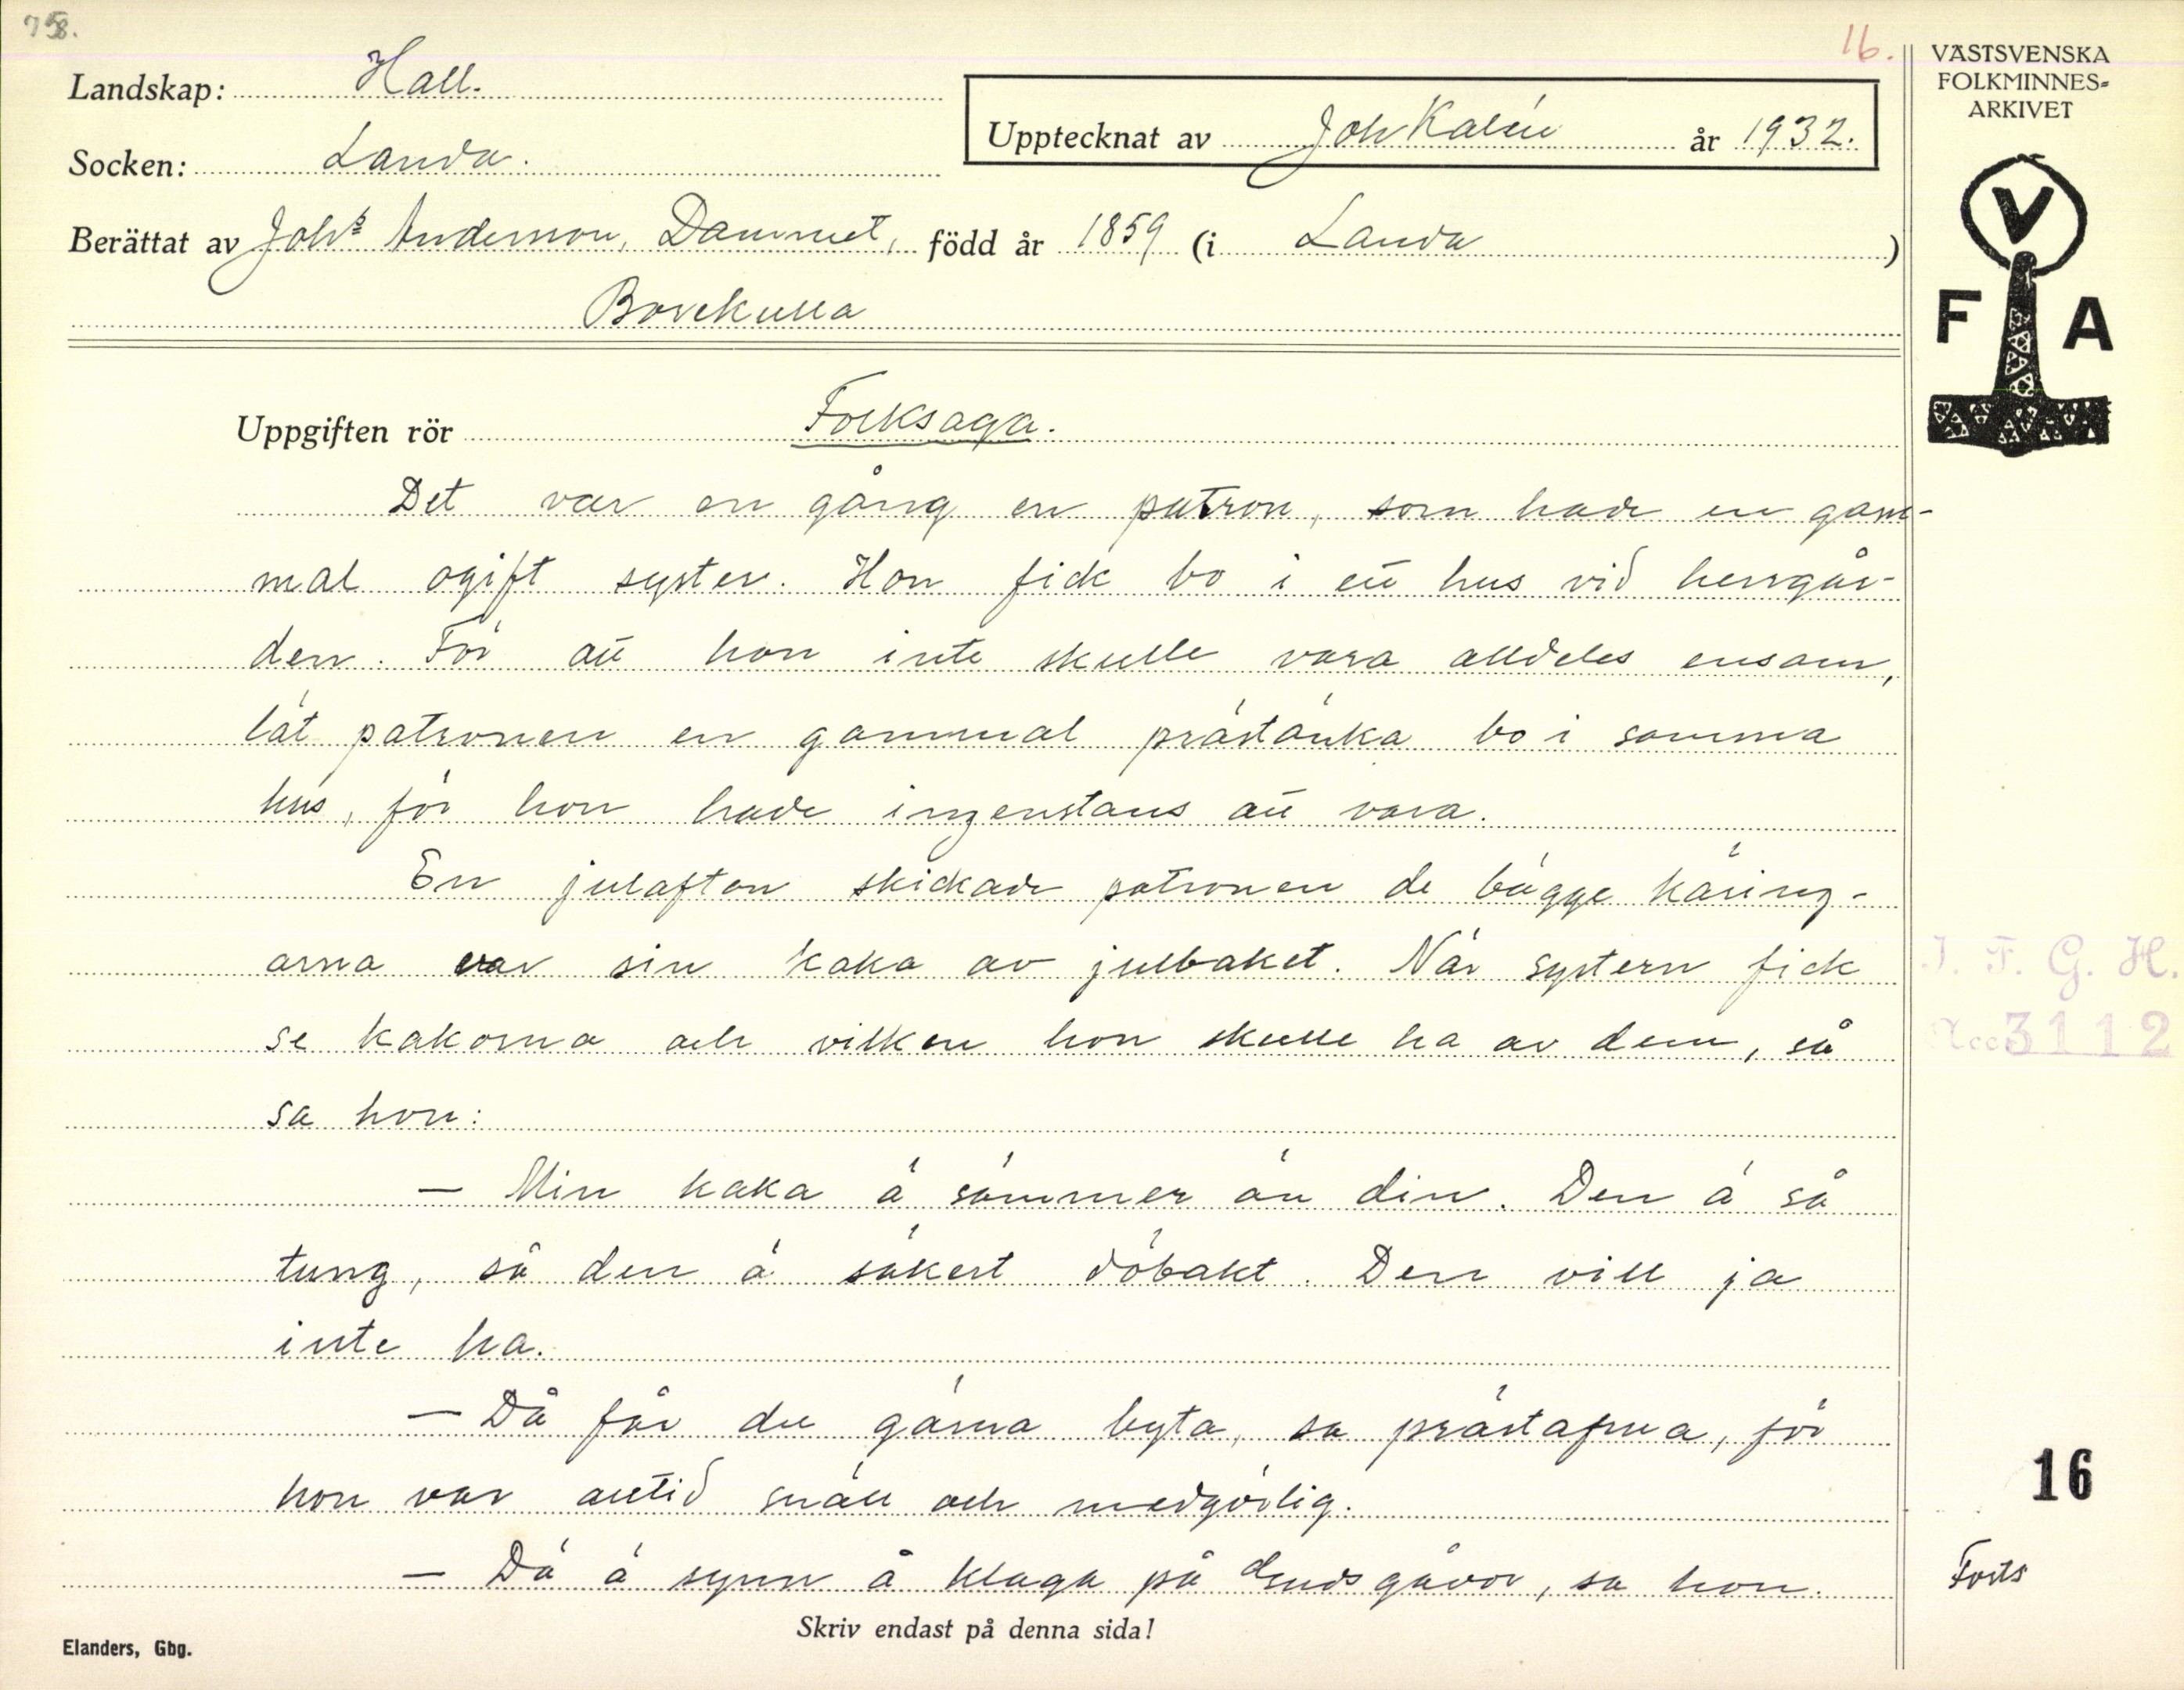 758.
16.
Landskap: Hall.
Upptecknat av Joh Kalén år 1932.
Socken: Landa.
Berättat av Johs Anderson, Dammet, född år 1859 (i Landa)
Bovekulla
VÄSTSVENSKA
FOLKMINNES-
ARKIVET
V
F A
Uppgiften rör Folksaga.
Det var en gång en patron, som hade en gam-
mal ogift syster. Hon fick bo i ett hus vid herrgår-
den. För att hon inte skulle vara alldeles ensam,
lät patronen en gammal prästänka bo i samma
hus, för hon hade ingenstans att vara.
En julafton skickade patronen de bägge käring-
arna var sin kaka av julbaket. När systern fick
se kakorna och vilken hon skulle ha av dem, så
sa hon:
— Min kaka ä sämmer än din. Den ä så
tung, så den ä säkert döbakt. Den vill ja
inte ha.
— Då får du gärna byta, sa prästafrua, för
hon var alltid snäll och medgörlig.
— Dä ä synn å klaga på Gudsgåvor, sa hon.
I. F. G. H.
Acc. 3112
16
Forts
Skriv endast på denna sida!
Elanders, Gbg.